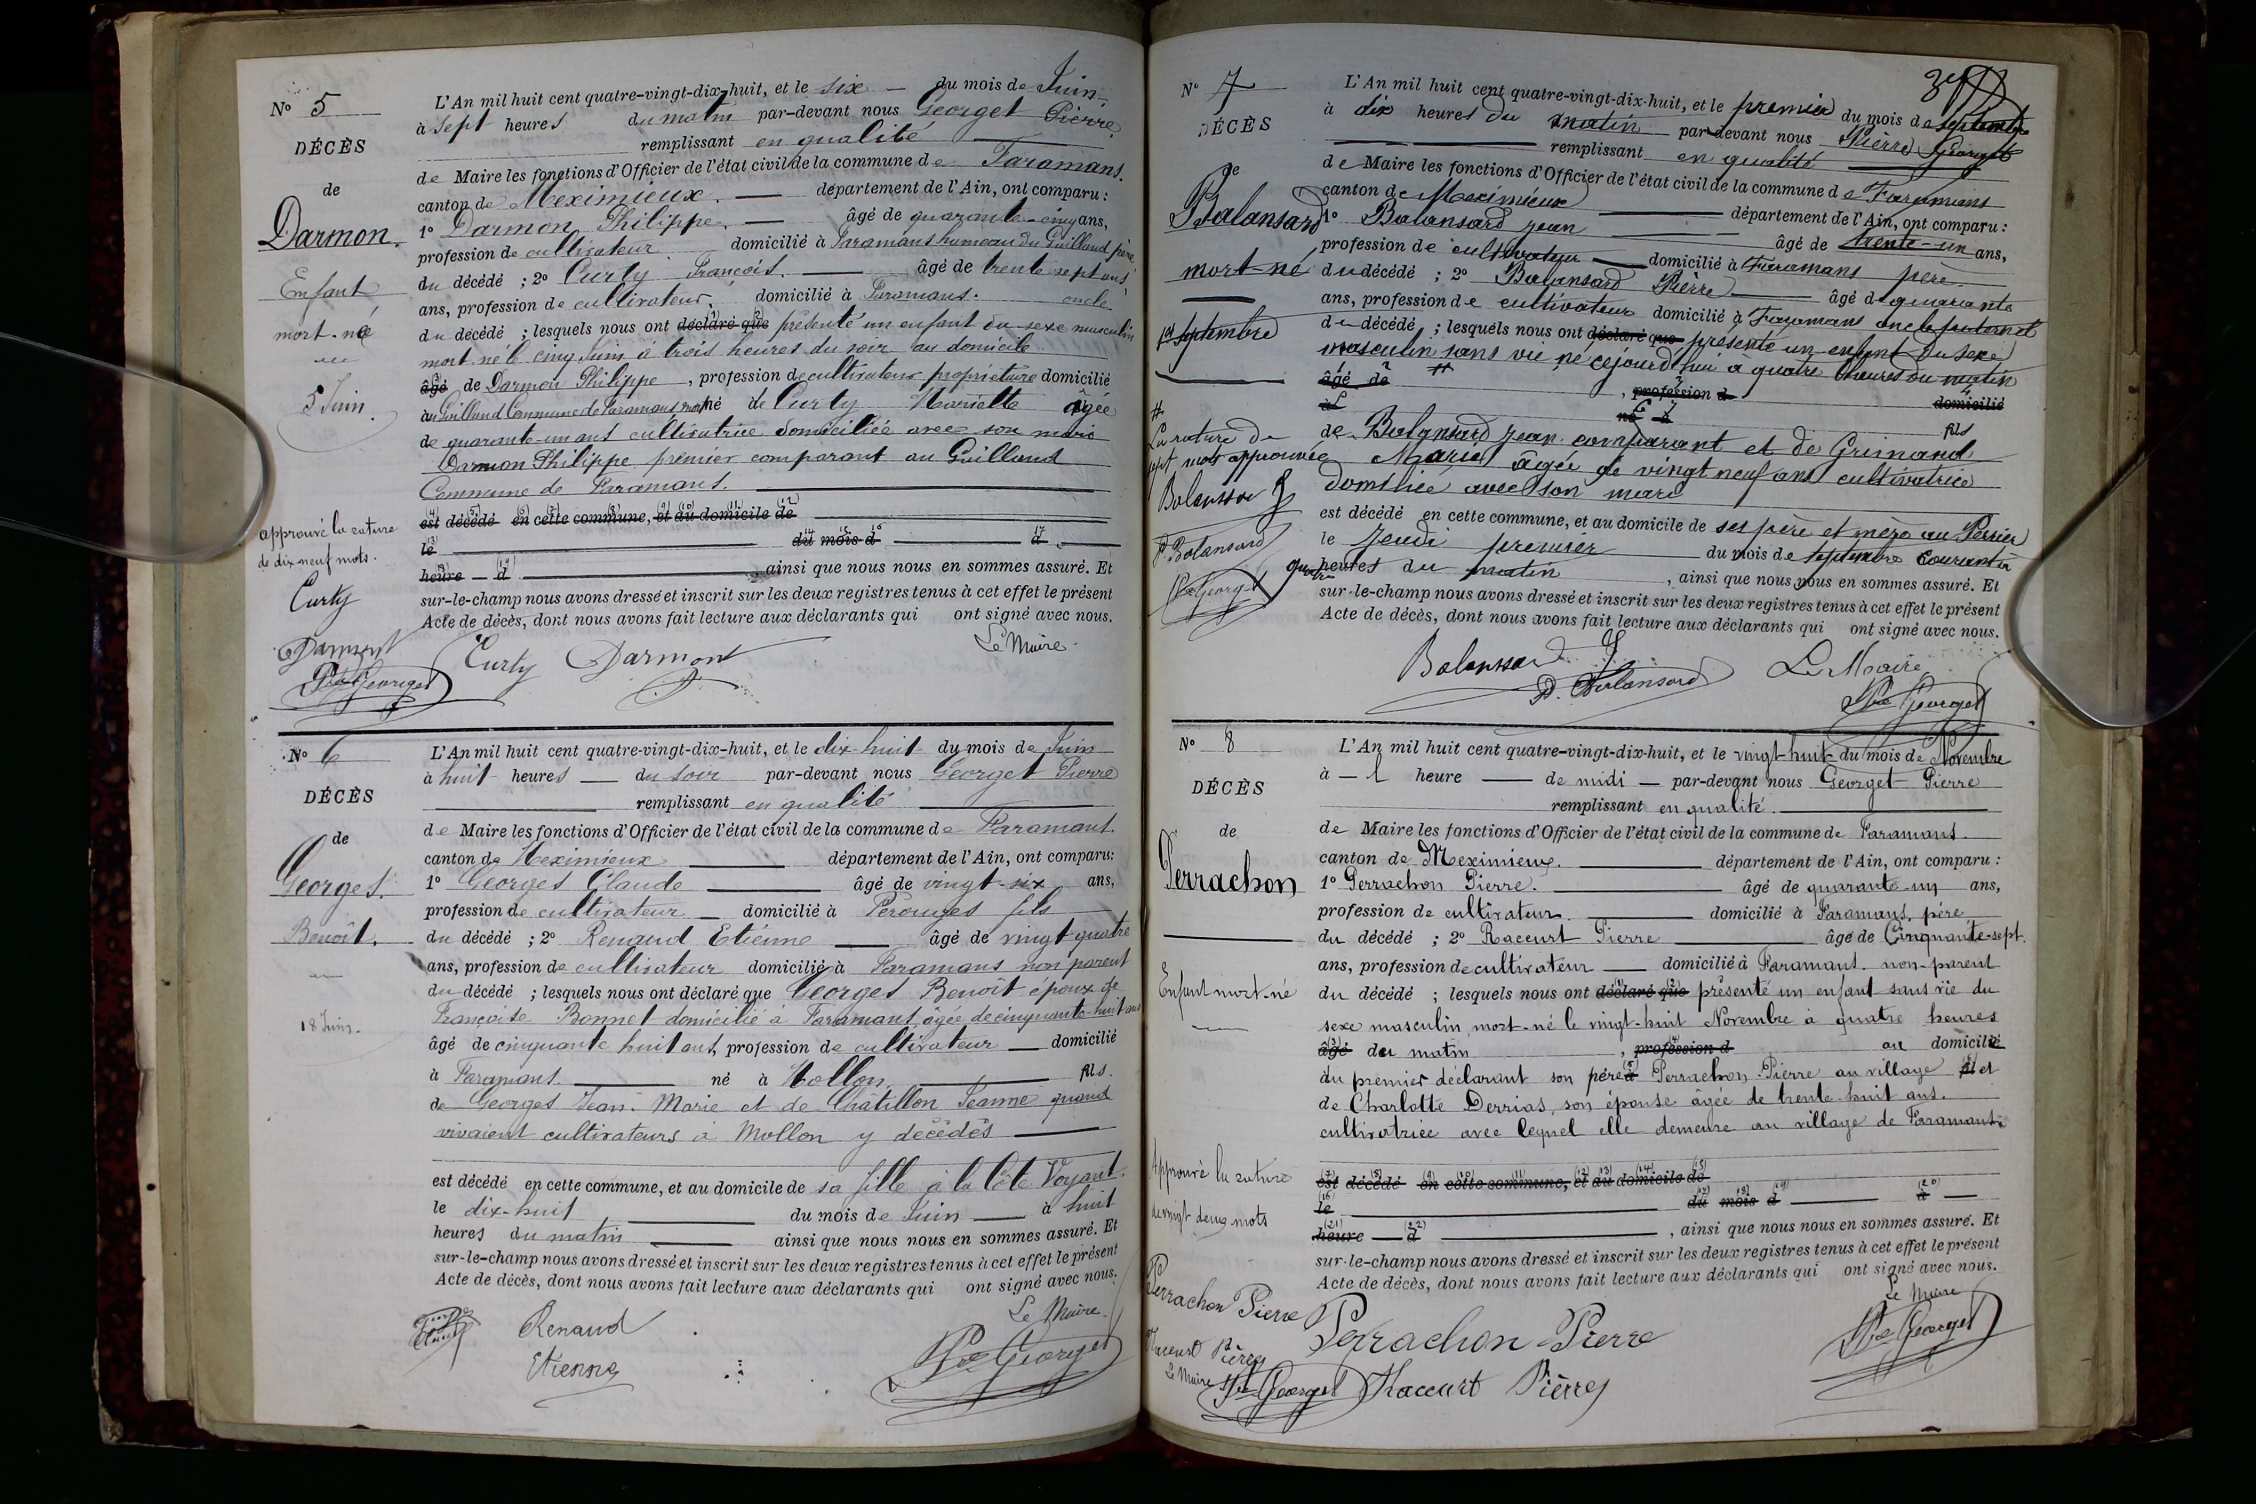 N° 5
DÉCÈS
de
Darmon.
Enfant
mort-né
5 Juin.
L'An mil huit cent quatre-vingt-dix-huit, et le six du mois de Juin
à sept heures du matin par-devant nous Georget Pierre
remplissant en qualité
de Maire les fonctions d'Officier de l'état civil de la commune de Faramans.
canton de Meximieux. département de l'Ain, ont comparu :
1° Darmon Philippe. âgé de quarante-cinq ans,
profession de cultivateur domicilié à Faramans hameau du Guilland père
du décédé ; 2° Curty François. âgé de trente sept ans
ans, profession de cultivateur, domicilié à Faramans. oncle
du décédé ; lesquels nous ont déclaré que présenté un enfant du sexe masculin
mort né le cinq Juin à trois heures du soir au domicile
âgé de Darmon Philippe, profession de cultivateur propriétaire domicilié
au Guilland Commune de Faramans né de Curty Mariette âgée
de quarante-un ans cultivatrice domiciliée avec son mari
Darmon Philippe premier comparant au Guilland
Commune de Faramans.
est décédé en cette commune, et au domicile de
le du mois d à
heure d , ainsi que nous nous en sommes assuré. Et
sur-le-champ nous avons dressé et inscrit sur les deux registres tenus à cet effet le présent
Acte de décès, dont nous avons fait lecture aux déclarants qui ont signé avec nous.
approuvé la rature
de dix neuf mots.
Curty
Darmont
Pre Georget
Curty Darmont
Le Maire.
N° 6
DÉCÈS
de
Georges.
Benoît.
18 Juin.
L'An mil huit cent quatre-vingt-dix-huit, et le dix-huit du mois de Juin
à huit heures du soir par-devant nous Georget Pierre
remplissant en qualité
de Maire les fonctions d'Officier de l'état civil de la commune de Faramans.
canton de Meximieux département de l'Ain, ont comparu:
1° Georges Claude âgé de vingt-six ans,
profession de cultivateur domicilié à Pérouges fils
du décédé ; 2° Renaud Etienne âgé de vingt quatre
ans, profession de cultivateur domicilié à Faramans non parent
du décédé ; lesquels nous ont déclaré que Georges Benoît époux de
Françoise Bonnet domicilié à Faramans, âgée de cinquante-huit ans
âgé de cinquante huit ans, profession de cultivateur domicilié
à Faramans né à Mollon fils.
de Georges Jean-Marie et de Châtillon Jeanne quand
vivaient cultivateurs à Mollon y décédés
est décédé en cette commune, et au domicile de sa fille à la Côte Voyant.
le dix-huit du mois de Juin à huit
heures du matin ainsi que nous nous en sommes assuré. Et
sur-le-champ nous avons dressé et inscrit sur les deux registres tenus à cet effet le présent
Acte de décès, dont nous avons fait lecture aux déclarants qui ont signé avec nous.
Le Maire.
Renaud
Etienne
Pre Georget
N° 7
DÉCÈS
de
Balansard
mort-né
1er septembre
L'An mil huit cent quatre-vingt-dix-huit, et le premier du mois de septembre
à dix heures du matin par-devant nous Pierre Georget
remplissant en qualité
de Maire les fonctions d'Officier de l'état civil de la commune de Faramans
canton de Meximieux département de l'Ain, ont comparu :
1° Balansard Jean âgé de trente-un ans,
profession de cultivateur domicilié à Faramans père
du décédé ; 2° Balansard Pierre âgé de quarante
ans, profession de cultivateur domicilié à Faramans oncle paternel
du décédé ; lesquels nous ont déclaré que présenté un enfant du sexe
masculin sans vie né cejourd'hui à quatre heures du matin
âgé de , profession d domicilié
à né à fils
de Balansard Jean comparant et de Grimand
Marie âgée de vingt neuf ans cultivatrice
domiciliée avec son mari
est décédé en cette commune, et au domicile de ses père et mère au Perrier
le Jeudi premier du mois de septembre courant à
quatre heures du matin , ainsi que nous nous en sommes assuré. Et
sur-le-champ nous avons dressé et inscrit sur les deux registres tenus à cet effet le présent
Acte de décès, dont nous avons fait lecture aux déclarants qui ont signé avec nous.
La rature de
sept mots approuvée
Balansard J
P. Balansard
Pre Georget
Balansard J
P. Balansard
Le Maire
Pre Georget
N° 8
DÉCÈS
de
Perrachon
Enfant mort-né
L'An mil huit cent quatre-vingt-dix-huit, et le vingt-huit du mois de Novembre
à 1 heure de midi par-devant nous Georget Pierre
remplissant en qualité.
de Maire les fonctions d'Officier de l'état civil de la commune de Faramans.
canton de Meximieux. département de l'Ain, ont comparu :
1° Perrachon Pierre. âgé de quarante-un ans,
profession de cultivateur. domicilié à Faramans, père
du décédé ; 2° Raccurt Pierre âgé de Cinquante-sept.
ans, profession de cultivateur domicilié à Faramans. non-parent
du décédé ; lesquels nous ont déclaré que présenté un enfant sans vie du
sexe masculin, mort-né le vingt-huit Novembre à quatre heures
âgé du matin , profession d au domicile
du premier déclarant son père à Perrachon Pierre au village et
de Charlotte Derrias, son épouse âgée de trente huit ans.
cultivatrice avec lequel elle demeure au village de Faramans.
est décédé en cette commune, et au domicile de
le du mois d à
heure d , ainsi que nous nous en sommes assuré. Et
sur-le-champ nous avons dressé et inscrit sur les deux registres tenus à cet effet le présent
Acte de décès, dont nous avons fait lecture aux déclarants qui ont signé avec nous.
Approuvé la rature
de vingt deux mots
Perrachon Pierre
Raccurt Pierre
Le Maire
Pre Georget
Perrachon Pierre
Raccurt Pierre
Le Maire
Pre Georget